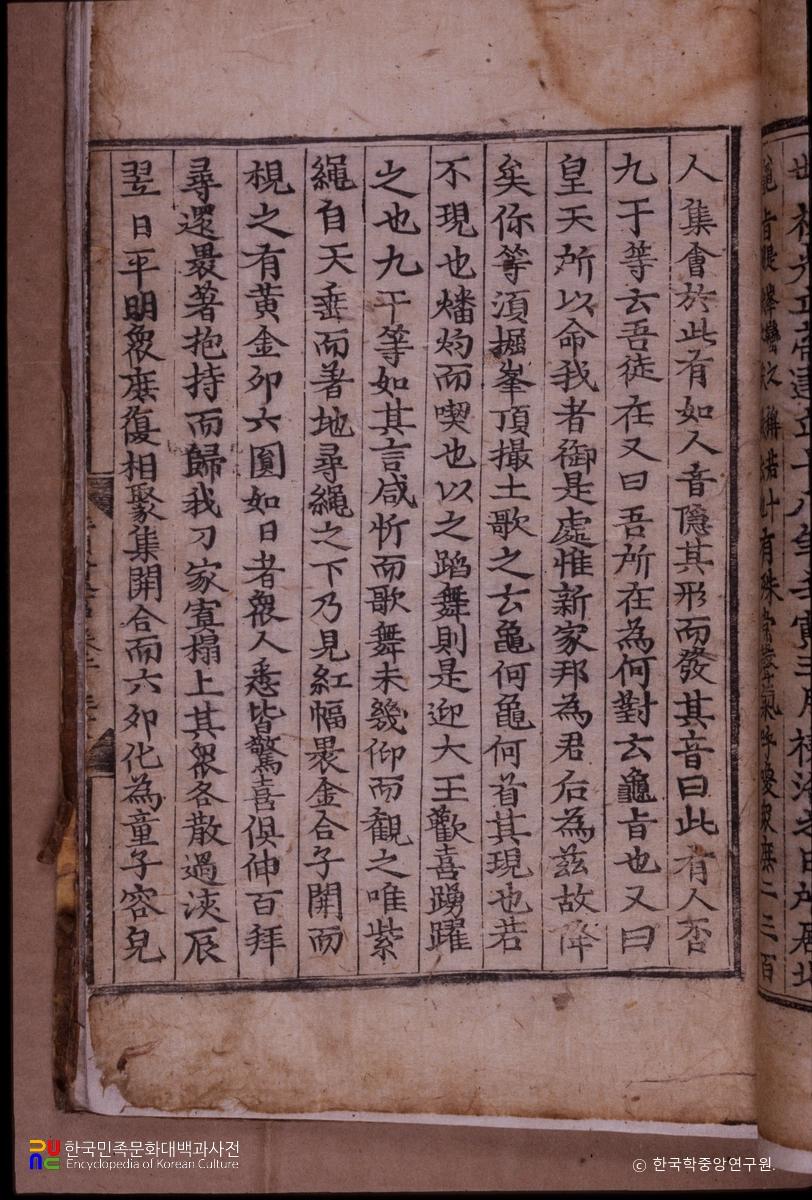 人集會於此有如人音隱其形而發其音曰此有人否
九干等云吾徒在又曰吾所在為何對云龜旨也又曰
皇天所以命我者御是處惟新家邦為君后為玆故降
矣你等湏掘峯頂撮土歌之云龜何龜何首其現也若
不現也燔灼而喫也以之蹈舞則是迎大王歡喜踴躍
之也九干等如其言咸忻而歌舞未幾仰而觀之唯紫
繩自天垂而著地尋繩之下乃見紅幅裹金合子開而
視之有黄金卵六圓如日者衆人悉皆驚喜俱伸百拜
尋還裹著抱持而歸我刀家寘榻上其衆各散過浹辰
翌日平明衆庶復相聚集開合而六卵化為童子容皃
한국민족문화대백과사전
Encyclopedia of Korean Culture
ⓒ 한국학중앙연구원.